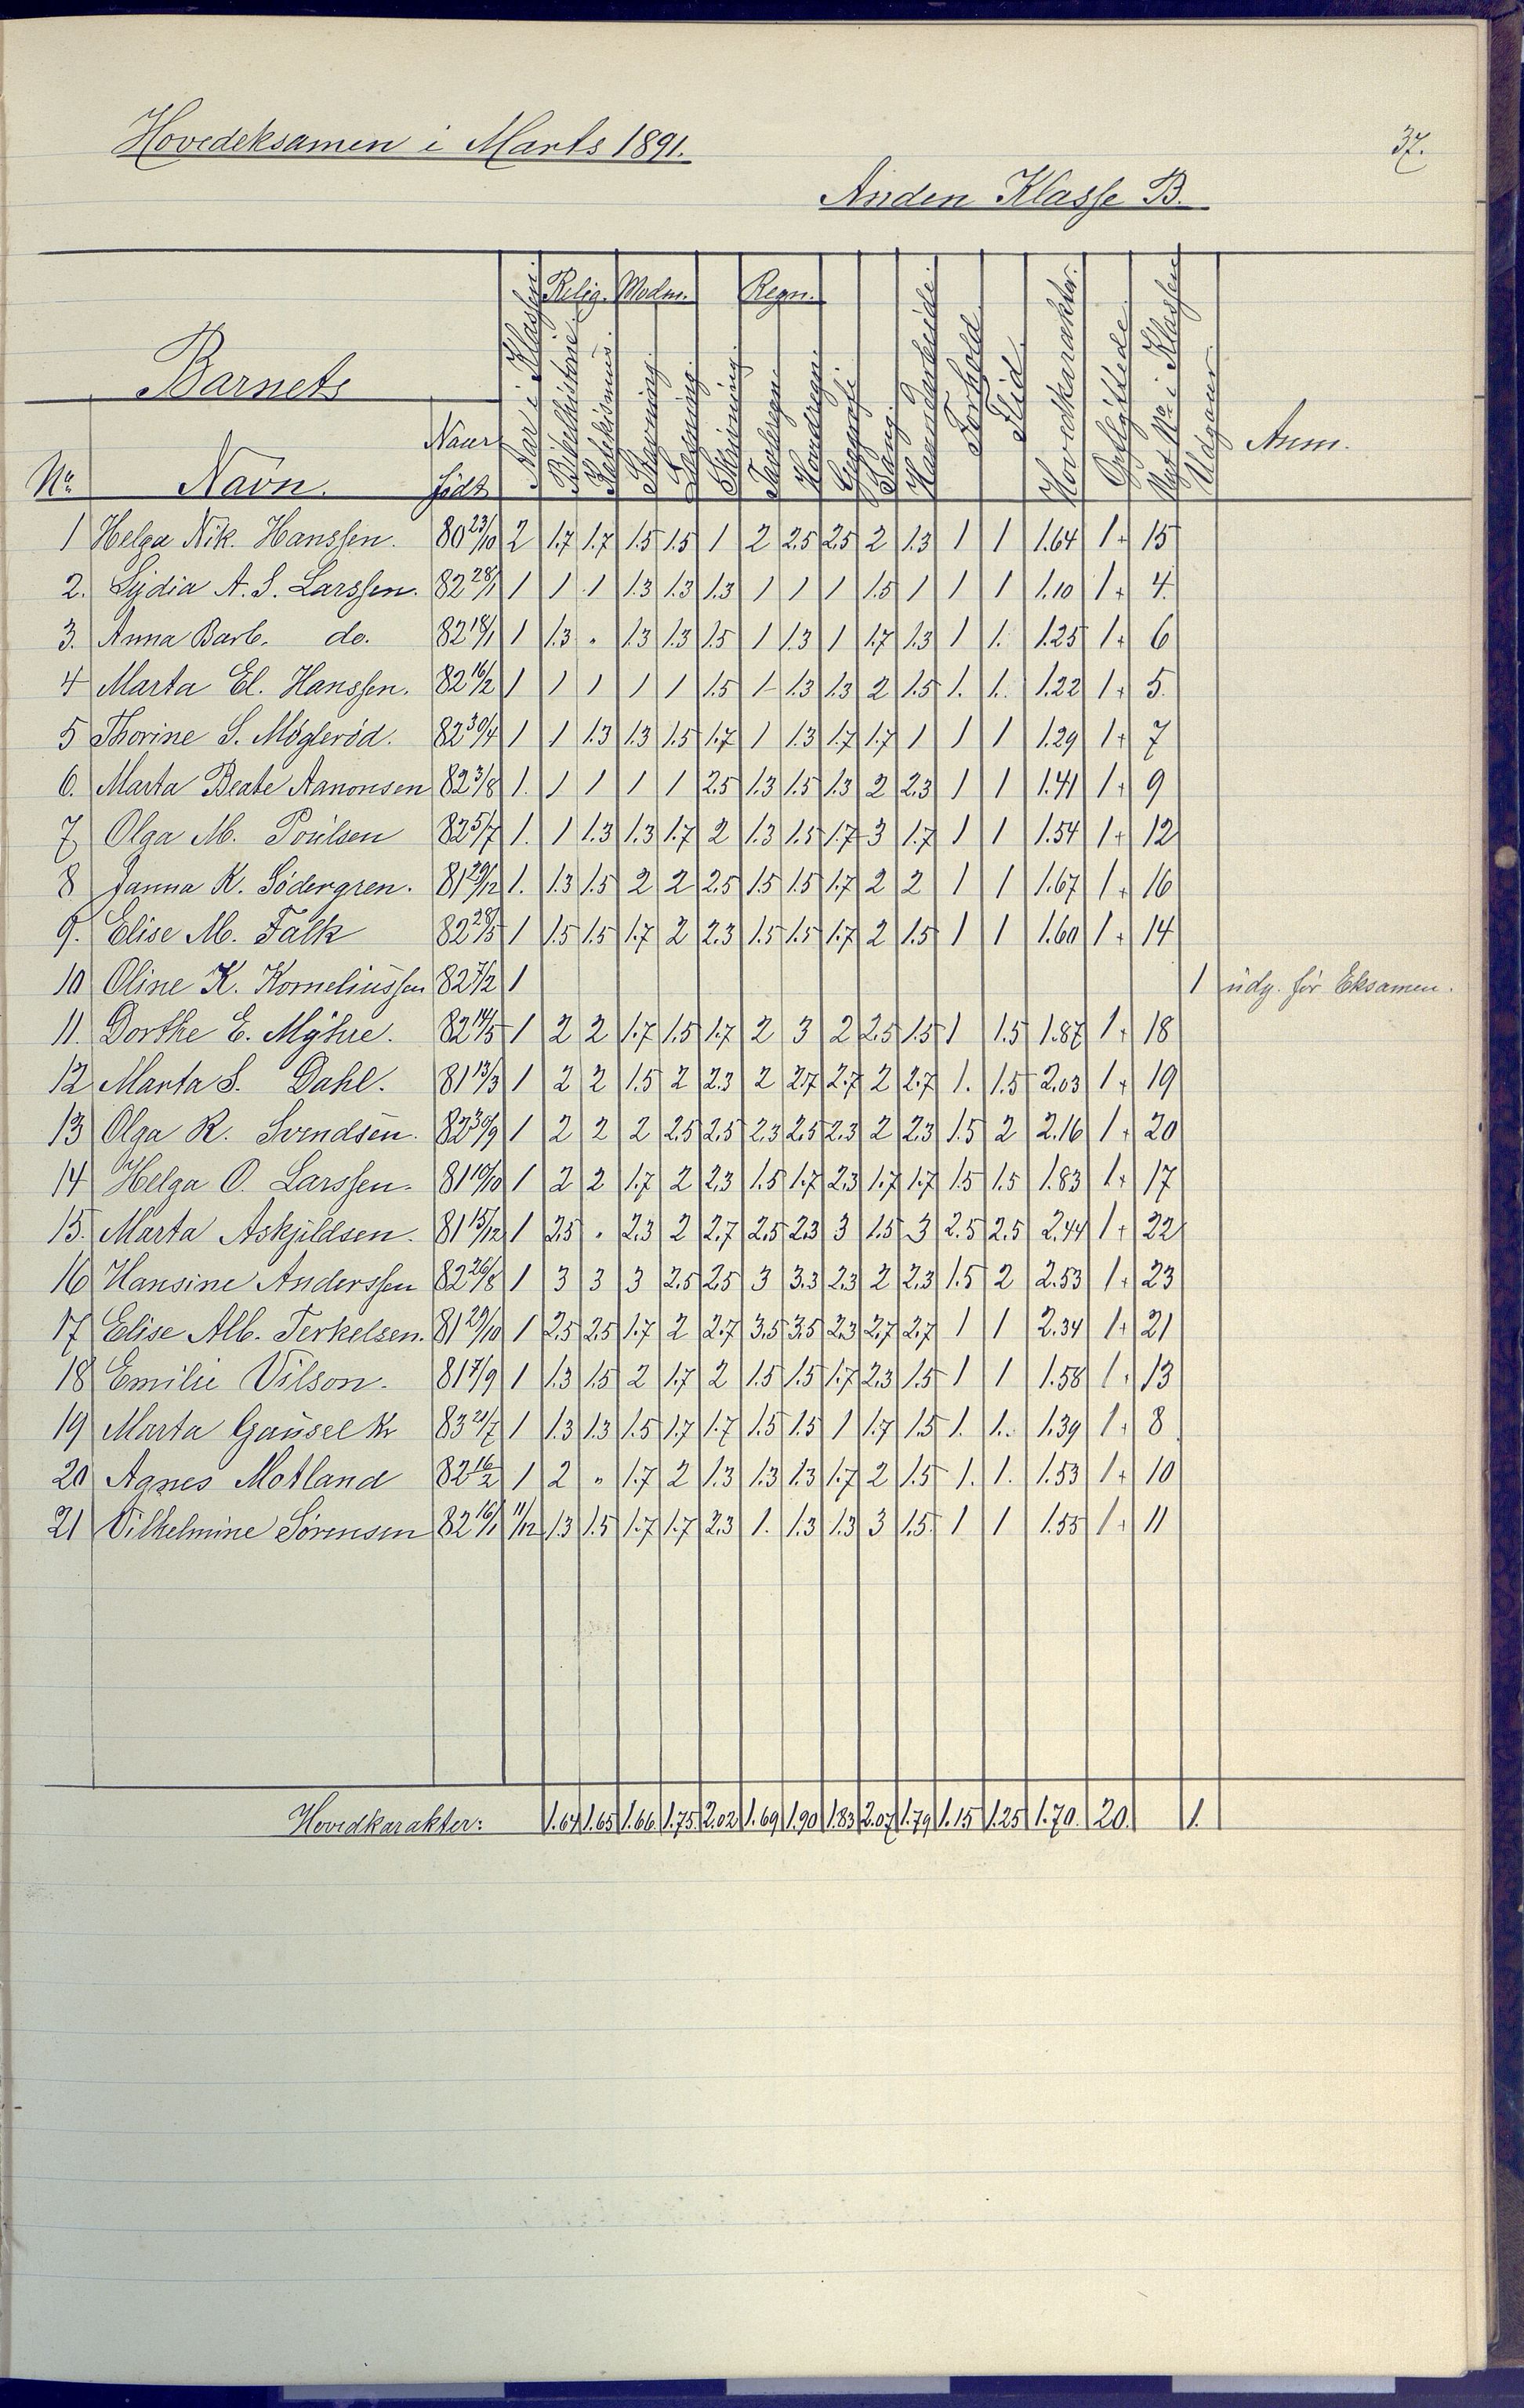 Hovedeksamen i Marts 1891.
37.
Anden Klasse B.
Relig. Modm. Regn.
Barnets
No. Navn. Naar født Aar i Klassen. Bibelhistorie. Katekismus. Skrivning. Læsning. Tavleregn. Hovedregn. Geografi. Sang. Haandarbeide. Forhold. Flid. Hovedkarakter. Opflyttede. Nyt No. i Klassen Udgaar. Anm.
1 Helga Nik. Hanssen. 80 23/10 2 1.7 1.7 1.5 1.5 1 2 2.5 2.5 2 1.3 1 1 1.64 1+ 15
2. Lydia A. S. Larssen. 82 28/1 1 1 1 1.3 1.3 1.3 1 1 1 1.5 1 1 1 1.10 1+ 4.
3. Anna Barb. do. 82 18/1 1 1.3 " 1.3 1.3 1.5 1 1.3 1 1.7 1.3 1 1. 1.25 1+ 6
4 Marta El. Hanssen. 82 16/2 1 1 1 1 1 1.5 1 1.3 1.3 2 1.5 1. 1. 1.22 1+ 5.
5 Thorine S. Møgleröd. 82 30/4 1 1 1.3 1.3 1.5 1.7 1 1.3 1.7 1.7 1 1 1 1.29 1+ 7
6. Marta Beate Aanonsen 82 3/8 1. 1 1 1 1 2.5 1.3 1.5 1.3 2 2.3 1 1 1.41 1+ 9
7 Olga M. Poulsen 82 5/7 1. 1 1.3 1.3 1.7 2 1.3 1.5 1.7 3 1.7 1 1 1.54 1+ 12
8 Janna K. Södergren. 81 29/12 1. 1.3 1.5 2 2 2.5 1.5 1.5 1.7 2 2 1 1 1.67 1+ 16
9. Elise M. Falk 82 28/5 1 1.5 1.5 1.7 2 2.3 1.5 1.5 1.7 2 1.5 1 1 1.60 1+ 14
10 Oline K. Korneliussen 82 7/2 1 1 udg. før Eksamen.
11. Dorthe E. Myhre. 82 14/5 1 2 2 1.7 1.5 1.7 2 3 2 2.5 1.5 1 1.5 1.87 1+ 18
12 Marta S. Dahl. 81 13/3 1 2 2 1.5 2 2.3 2 2.7 2.7 2 2.7 1. 1.5 2.03 1+ 19
13 Olga R. Svendsen. 82 30/9 1 2 2 2 2.5 2.5 2.3 2.5 2.3 2 2.3 1.5 2 2.16 1+ 20
14 Helga O. Larssen. 81 10/10 1 2 2 1.7 2 2.3 1.5 1.7 2.3 1.7 1.7 1.5 1.5 1.83 1+ 17
15. Marta Askjildsen. 81 15/12 1 2.5 " 2.3 2 2.7 2.5 2.3 3 1.5 3 2.5 2.5 2.44 1+ 22
16 Hansine Anderssen 82 26/8 1 3 3 3 2.5 2.5 3 3.3 2.3 2 2.3 1.5 2 2.53 1+ 23
17 Elise Alb. Terkelsen. 81 29/10 1 2.5 2.5 1.7 2 2.7 3.5 3.5 2.3 2.7 2.7 1 1 2.34 1+ 21
18 Emilie Vilson. 81 7/9 1 1.3 1.5 2 1.7 2 1.5 1.5 1.7 2.3 1.5 1 1 1.58 1+ 13
19 Marta Gausel 83 21/7 1 1.3 1.3 1.5 1.7 1.7 1.5 1.5 1 1.7 1.5 1. 1. 1.39 1+ 8
20 Agnes Motland 82 16/2 1 2 " 1.7 2 1.3 1.3 1.3 1.7 2 1.5 1. 1. 1.53 1+ 10
21 Vilhelmine Sørensen 82 16/1 11/12 1.3 1.5 1.7 1.7 2.3 1. 1.3 1.3 3 1.5 1 1 1.55 1+ 11
Hovedkarakter: 1.64 1.65 1.66 1.75 2.02 1.69 1.90 1.83 2.07 1.79 1.15 1.25 1.70. 20. 1.